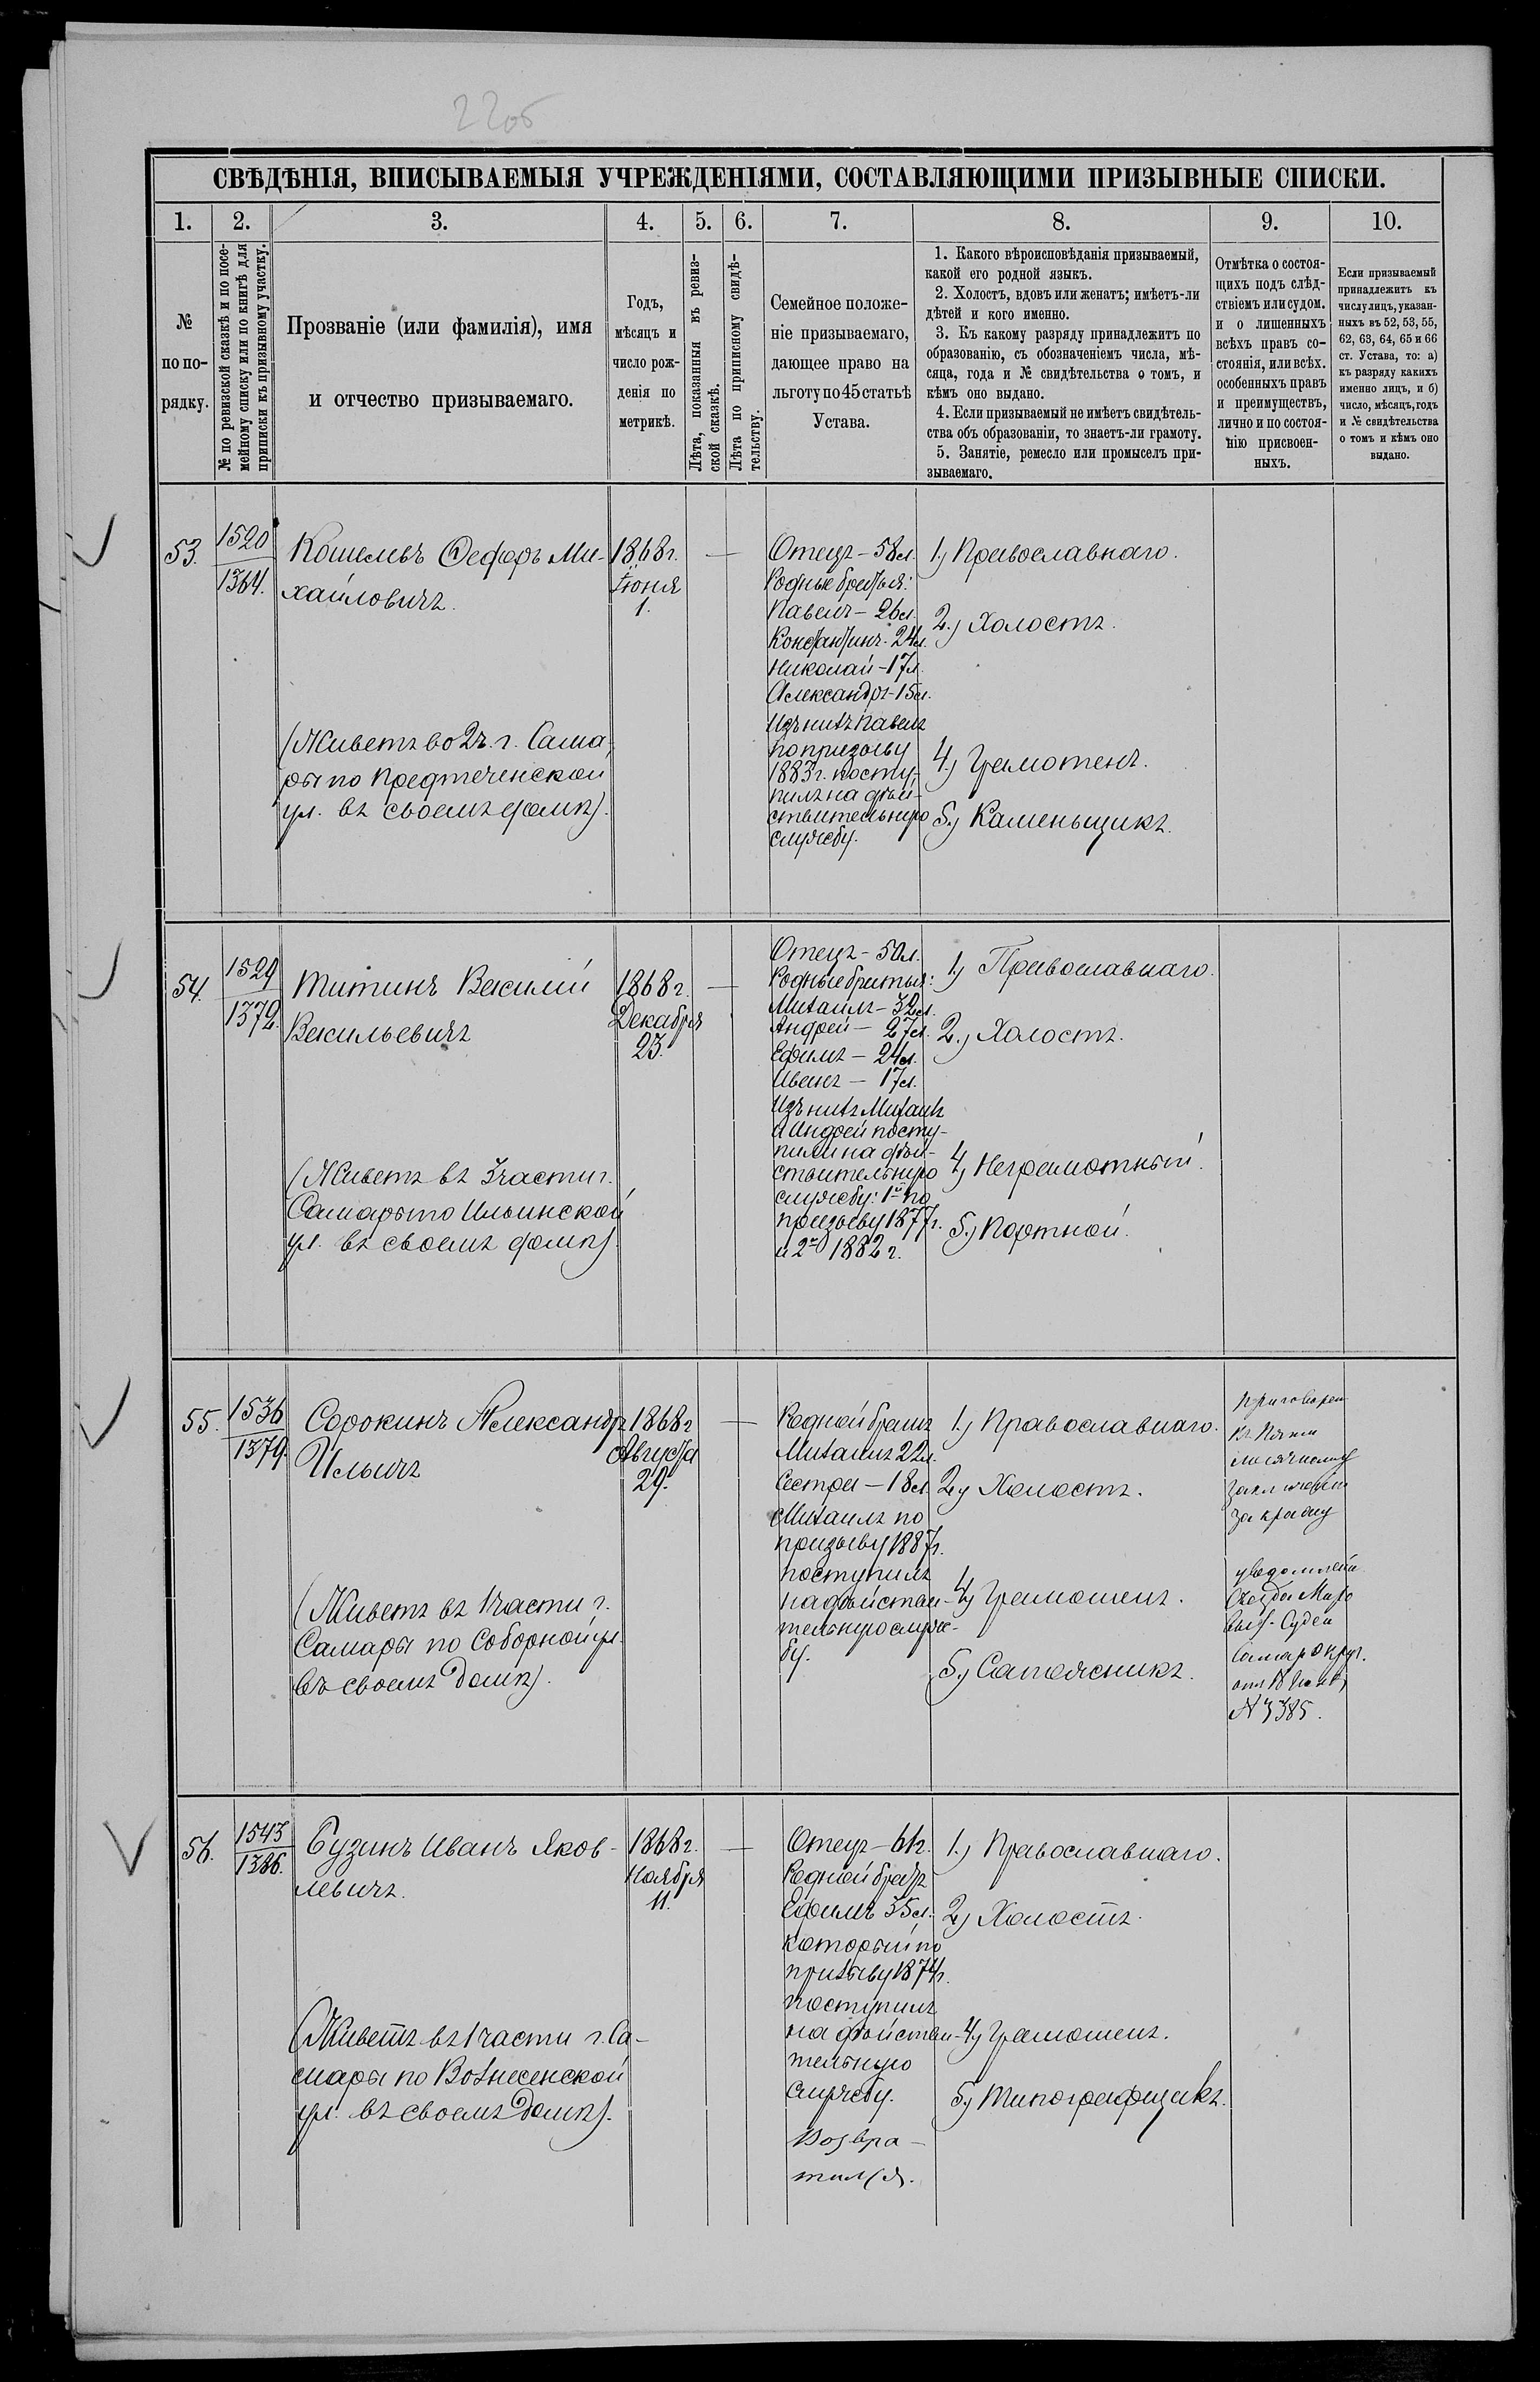 22об
СВѢДѢНІЯ, ВПИСЫВАЕМЫЯ УЧРЕЖДЕНІЯМИ, СОСТАВЛЯЮЩИМИ ПРИЗЫВНЫЕ СПИСКИ.
1. 2. 3. 4. 5. 6. 7. 8. 9. 10.
№
по по-
рядку.
№ по ревизской сказкѣ и по посе-
мейному списку или по книгѣ для
приписки къ призывному участку.
Прозваніе (или фамилія), имя
и отчество призываемаго.
Годъ,
мѣсяцъ и
число рож-
денія по
метрикѣ.
Лѣта, показанныя въ ревиз-
ской сказкѣ.
Лѣта по приписному свидѣ-
тельству.
Семейное положе-
ніе призываемаго,
дающее право на
льготу по 45 статьѣ
Устава.
1. Какого вѣроисповѣданія призываемый,
какой его родной языкъ.
2. Холостъ, вдовъ или женатъ; имѣетъ-ли
дѣтей и кого именно.
3. Къ какому разряду принадлежитъ по
образованію, съ обозначеніемъ числа, мѣ-
сяца, года и № свидѣтельства о томъ, и
кѣмъ оно выдано.
4. Если призываемый не имѣетъ свидѣтель-
ства объ образованіи, то знаетъ-ли грамоту.
5. Занятіе, ремесло или промыселъ при-
зываемаго.
Отмѣтка о состоя-
щихъ подъ слѣд-
ствіемъ или судом.
и о лишенныхъ
всѣхъ правъ со-
стоянія, или всѣх.
особенныхъ правъ
и преимуществъ,
лично и по состоя-
нію присвоен-
ныхъ.
Если призываемый
принадлежитъ къ
числу лицъ, указан-
ныхъ въ 52, 53, 55,
62, 63, 64, 65 и 66
ст. Устава, то: а)
къ разряду какихъ
именно лицъ, и б)
число, мѣсяцъ, годъ
и № свидѣтельства
о томъ и кѣмъ оно
выдано.
53.
1520
1364.
Кошелевъ Федоръ Ми-
хайловичъ.
(Живетъ во 2ч. г. Сама-
ры по Предтеченской
ул. въ своемъ домѣ).
1868 г.
Іюня
1.
—
Отецъ – 58 л.
Родные братья:
Павелъ – 26 л.
Константинъ - 24 л.
Николай – 17 л.
Александръ – 15 л.
Изъ нихъ Павелъ
по призыву
1883 г. посту-
пилъ на дѣй-
ствительную
службу.
1.) Православнаго.
2.) Холостъ.
4.) Грамотенъ.
5.) Каменьщикъ.
54.
1529
1372.
Титинъ Василій
Васильевичъ
(Живетъ въ 3 части г.
Самары по Ильинской
ул. въ своемъ домѣ).
1868 г.
Декабря
23.
—
Отецъ – 50 л.
Родные братья:
Михаилъ – 32 л.
Андрей – 27 л.
Ефимъ – 24 л.
Иванъ – 17 л.
Изъ нихъ Михаилъ
и Андрей посту-
пили на дѣй-
ствительную
службу: 1й по
призыву 1877 г.
и 2й 1882 г.
1.) Православнаго.
2.) Холостъ.
4.) Неграмотный.
5.) Портной.
55.
1536
1379.
Сорокинъ Александръ
Ильичъ
(Живетъ въ 1 части г.
Самары по Соборной ул.
въ своемъ домѣ).
1868 г.
Августа
29.
—
Родной братъ
Михаилъ 22 л.
Сестра – 18 л.
Михаилъ по
призыву 1887 г.
поступилъ
на дѣйстви-
тельную служ-
бу.
1.) Православнаго.
2.) Холостъ.
4.) Грамотенъ.
5.) Сапожникъ.
Приговорен
къ
мѣсячному
заключенію
за кражу
увѣдомленіе
Съѣзда Миро
вых. Судей
Самар. Округ.
№ 3385.
56.
1543
1386.
Бузинъ Иванъ Яков-
левичъ.
(Живетъ въ 1 части г. Са-
мары по Вознесенской
ул. въ своемъ домѣ).
1868 г.
Ноября
11.
—
Отецъ – 61 г.
Родной братъ
Ефимъ 35 л.
который по
призыву 1874 г.
поступилъ
на дѣйстви-
тельную
службу.
Возвра-
тился.
1.) Православнаго.
2.) Холостъ.
4.) Грамотенъ.
5.) Типографщикъ.